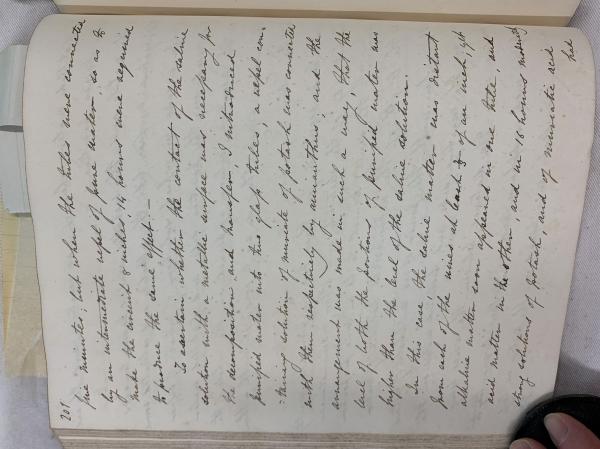 207
five minutes; but when the tubes were connected
by an intermediate vessel of pure water, so as to
make the circuit 8 inches, 14 hours were required
to produce the same effect. —
To ascertain whether the contact of the saline
solution with a metallic surface was necessary for
the decomposition and transfer I introduced
purified water into two glass tubes, a vessel con-
-taining solution of muriate of potash was connected
with them respectively by amianthus; and the
arrangement was made in such a way, that the
level of both the portions of purified water was
higher than the level of the saline solution.
In this case, the saline matter was distant
from each of the wires at least ⅔ of an inch, yet
alkaline matter soon appeared in one tube, and
acid matter in the other, and in 16 hours moderately
strong solutions of potash, and of muriatic acid
had